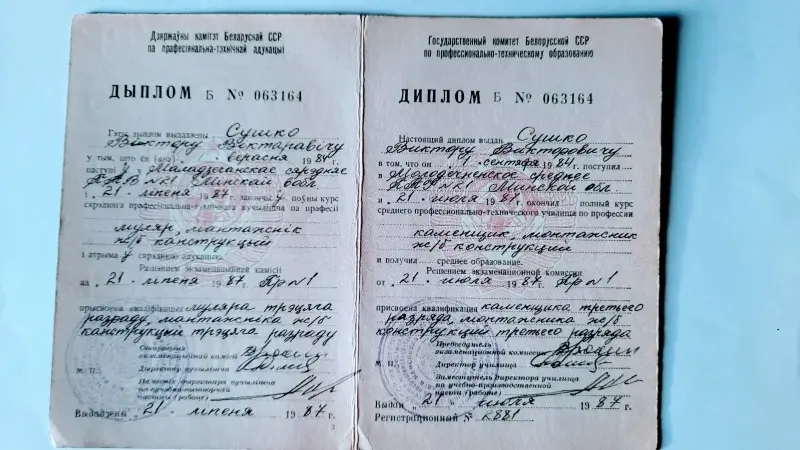 Дзяржаўны камітэт Беларускай ССР
па прафесіянальна-тэхнічнай адукацыі
ДЫПЛОМ Б № 063164
Гэты дыплом выдадзены Сушко
Віктару Віктаравічу
у тым, што ён (яна) верасня 1984 г.
паступіў у Маладзечанскае сярэдняе
№ 21 Мінскай вобл.
і 21 ліпеня 1987 г. закончыў поўны курс
сярэдняга прафесіянальна-тэхнічнага вучылішча па прафесіі
муляр, мантажнік
ж/б канструкцый
і атрымаў сярэднюю адукацыю.
Рашэннем экзаменацыйнай камісіі
ад 21 ліпеня 1987 г. Пр №1
прысвоена кваліфікацыя муляра трэцяга
разраду, мантажніка ж/б
канструкцый трэцяга разраду
Старшыня
экзаменацыйнай камісіі
Дырэктар вучылішча
М. П.
Намеснік дырэктара вучылішча
па вучэбна-вытворчай
частцы (рабоце)
Выдадзены „21" ліпеня 1987 г.
Государственный комитет Белорусской ССР
по профессионально-техническому образованию
ДИПЛОМ Б № 063164
Настоящий диплом выдан Сушко
Виктору Викторовичу
в том, что он 1 сентября 1984 г. поступил
в Молодечненское среднее
№21 Минской обл.
и 21 июля 1987 г. окончил полный курс
среднего профессионально-технического училища по профессии
каменщик, монтажник
ж/б конструкций
и получил среднее образование.
Решением экзаменационной комиссии
от 21 июля 1987 г. Пр №1
присвоена квалификация каменщика третьего
разряда, монтажника ж/б
конструкций третьего разряда
Председатель
экзаменационной комиссии
Директор училища
М. П.
Заместитель директора училища
по учебно-производственной
части (работе)
Выдан „21" июля 1987 г.
Регистрационный № 2881